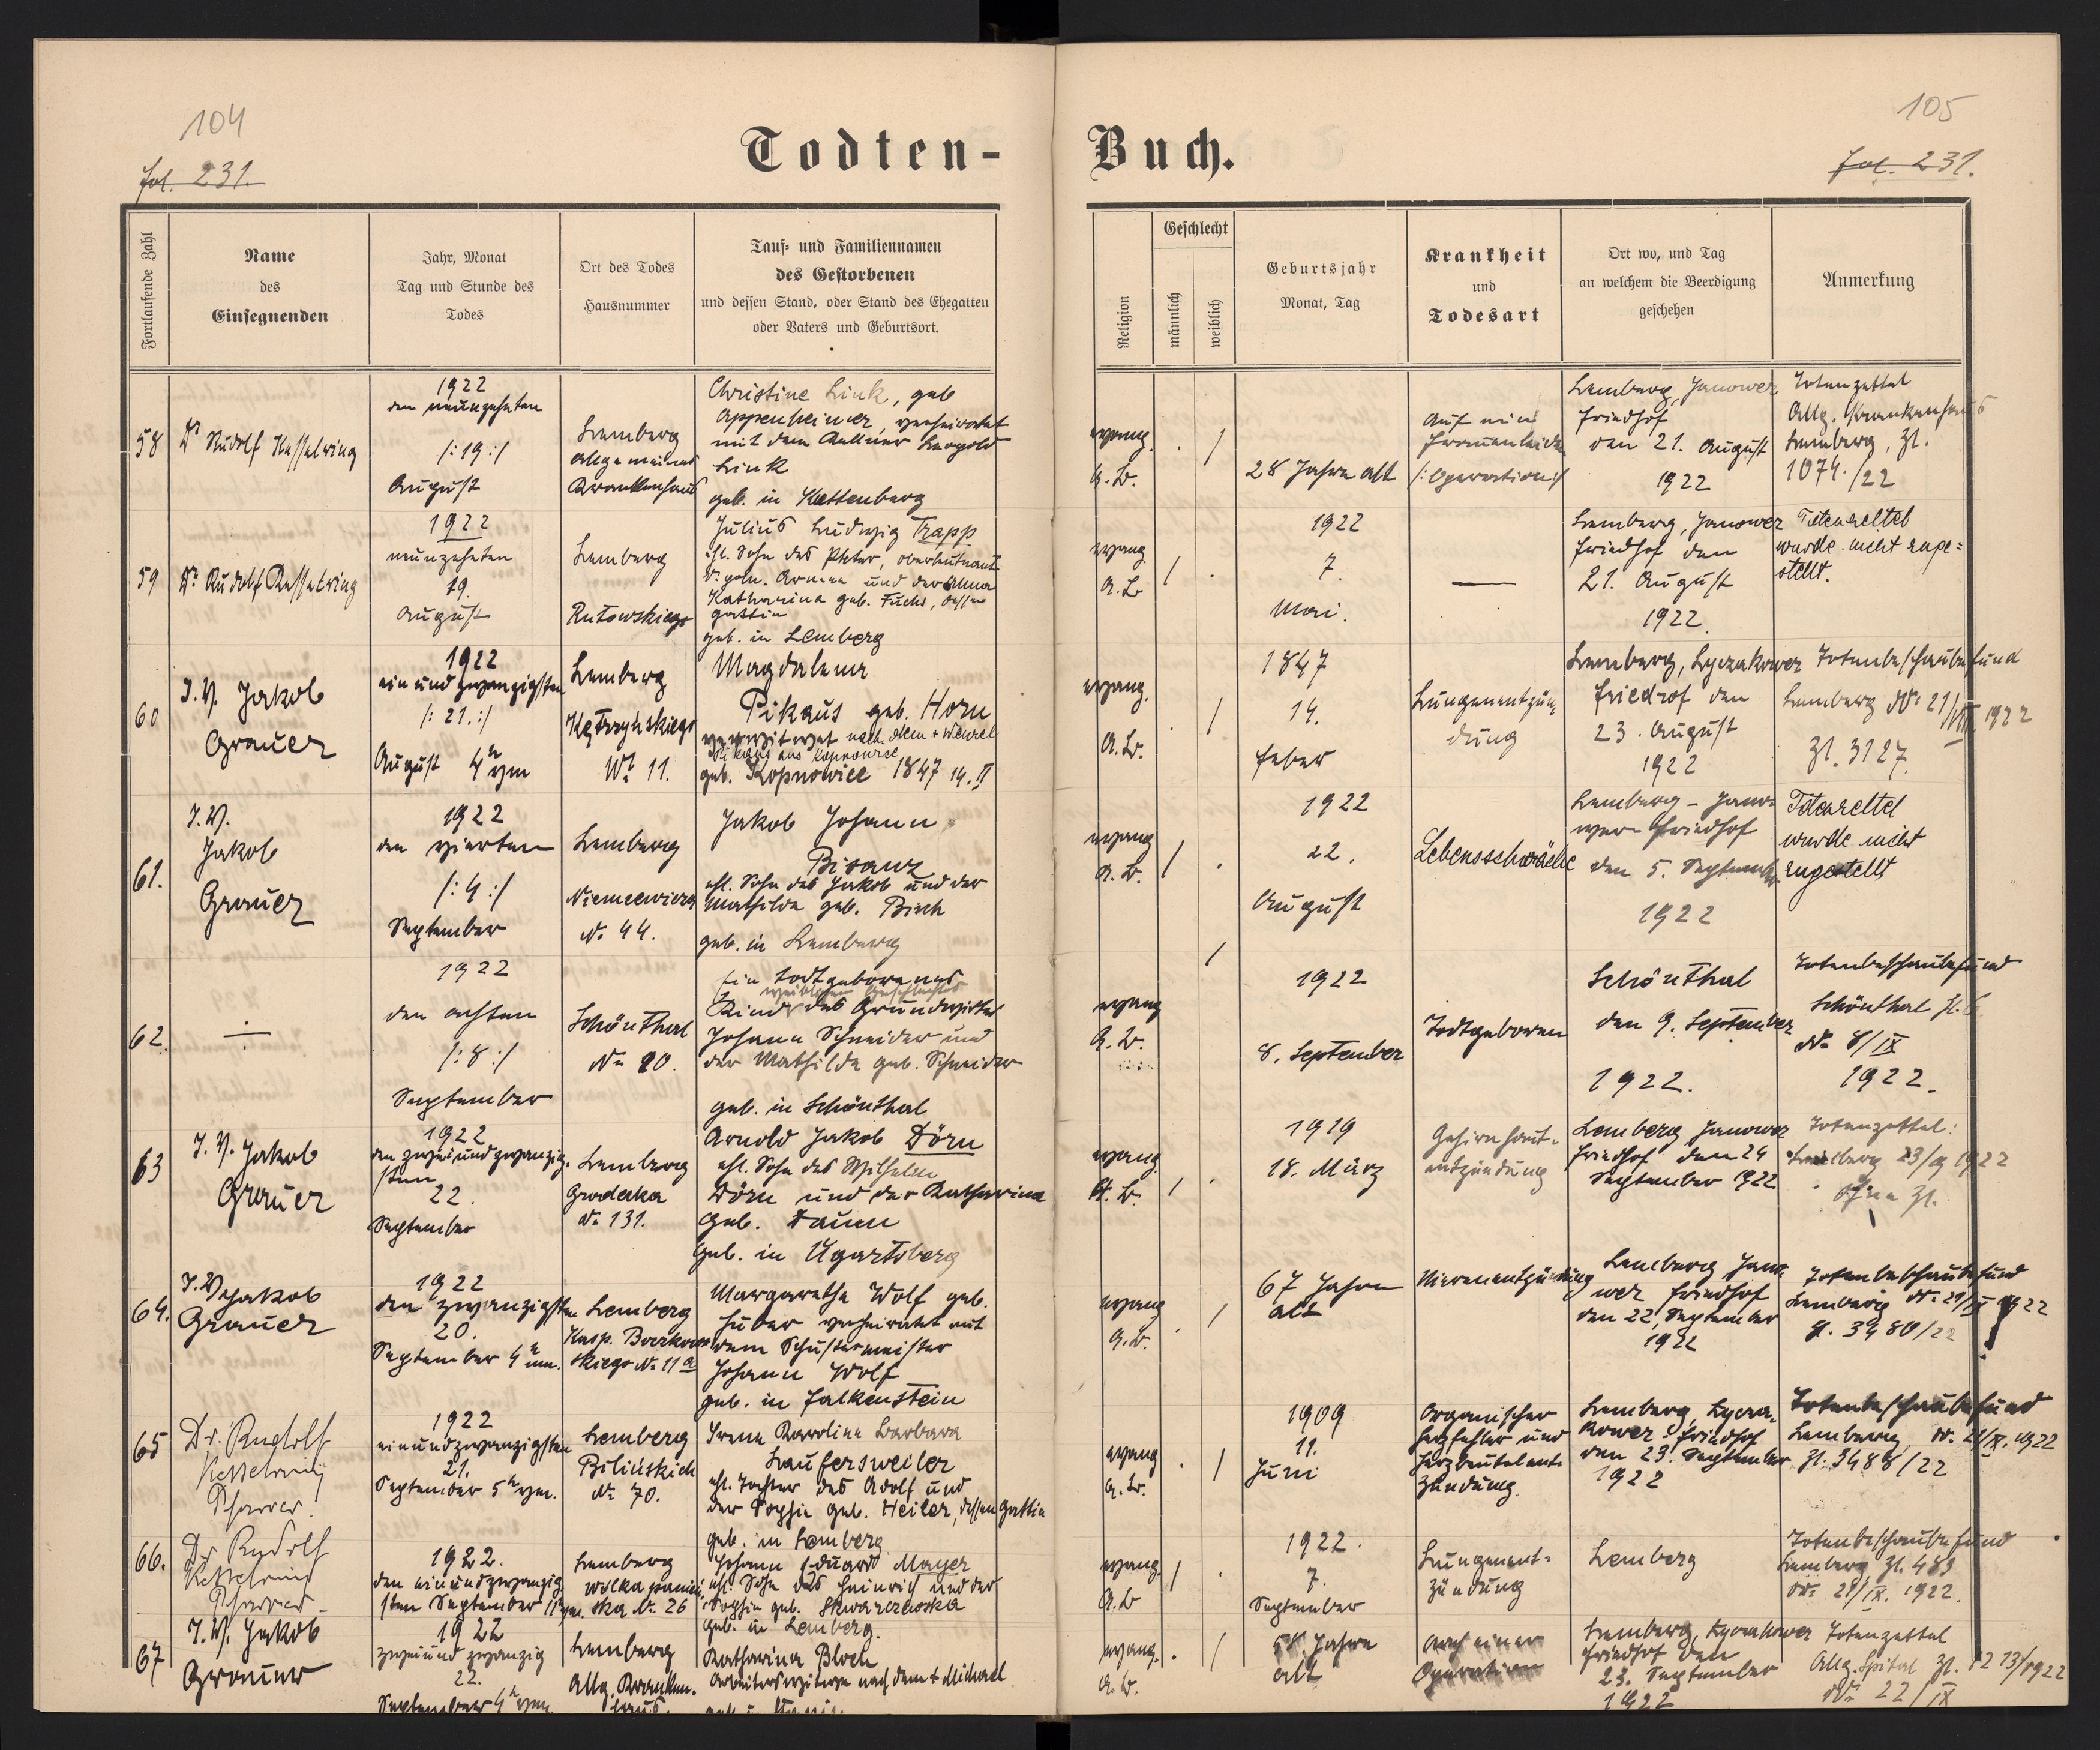 104
fol. 231.
Todten-
Fortlaufende Zahl
Name
des
Einsegnenden
Jahr, Monat
Tag und Stunde des
Todes
Ort des Todes
Hausnummer
Tauf- und Familiennamen
des Gestorbenen
und dessen Stand, oder Stand des Ehegatten
oder Vaters und Geburtsort.
58
Dr Rudolf Kesselring
1922
den neunzehnten
/:19:/
August
Lemberg
allgemeines
Krankenhaus
Christine Link, geb
Oppenheimer, verheiratet
mit dem Kellner Leopold
Link
geb. in Kattenberg
59
Dr Rudolf Kesselring
1922
neunzehnten
19.
August
Lemberg
Rutowskiego
Julius Ludwig Trapp
ehl. Sohn des Peter, Oberleutnant
d. poln. Armee und der Anna
Katharina geb. Fuchs, dessen
Gattin
geb. in Lemberg
60
I.V. Jakob
Grauer
1922
ein und zwanzigsten
/:21.:/
August 4h vm
Lemberg
Kętrzyńskiego
No 11.
Magdalena
Pikaus geb. Horn
verwitwet nach dem + Wenzel
Pikaus aus
geb. Kopnowice 1847 14. II
61.
I.V.
Jakob
Grauer
1922
den vierten
/:4:/
September
Lemberg
Niemcewicza
No 44.
Jakob Johann
Bisanz
ehl. Sohn des Jakob und der
Mathilde geb. Bisch
geb. in Lemberg
62
1922
den achten
/:8:/
September
Schönthal
No 20.
Ein todtgeborenes
weiblichen Geschlechtes
Kind des Grundwirtes
Johann Schneider und
der Mathilde geb. Schneider
geb. in Schönthal
63
I.V. Jakob
Grauer
1922
den zweiundzwanzig-
sten
22.
September
Lemberg
Grodecka
No 131.
Arnold Jakob Dörn
ehl. Sohn des Wilhelm
Dörn und der Katharina
geb. Daum
geb. in Ugartsberg
64.
I.V. Jakob
Grauer
1922
den zwanzigsten
20.
September 4h nm.
Lemberg
Kasp. Boczkow-
skiego No 11 a
Margaretha Wolf geb.
Huber verheiratet mit
dem Schustermeister
Johann Wolf
geb. in Falkenstein
65
Dr. Rudolf
Kesselring
Pfarrer.
1922
einundzwanzigsten
21.
September 5h vm.
Lemberg
Bilińskich
No 70.
Irene Karoline Barbara
Laufersweiler
ehl. Tochter des Adolf und
der Sophie geb. Heiler, dessen Gattin
geb. in Lemberg
66.
Dr. Rudolf
Kesselring
Pfarrer
1922.
den einundzwanzig
sten September 11h vm.
Lemberg
Wólka panień-
ska No 26
Johann Eduard Mayer
ehl. Sohn des Heinrich und der
Sophie geb. Skwarczewska
geb. in Lemberg.
67
I.V. Jakob
Grauer
1922
zweiund zwanzig
22.
September 4h vm
Lemberg
Allg. Kranken-
haus.
Katharina Bloch
Arbeiterswitwe nach dem + Michael
105
Buch.
fol. 231.
Religion
Geschlecht
männlich
weiblich
Geburtsjahr
Monat, Tag
Krankheit
und
Todesart
Ort wo, und Tag
an welchem die Beerdigung
geschehen
Anmerkung
evang.
A.B.
28 Jahre alt
Auf ein
Frauenleiden
/:Operation:/
Lemberg, Janower
Friedhof
den 21. August
1922
Totenzettel
Allg. Krankenhaus
Lemberg, Zl.
1074./22
evang.
A.B.
1922
7.
Mai.
Lemberg, Janower
Friedhof den
21. August
1922.
Totenzettel
wurde nicht zuge-
stellt.
evang.
A.B.
1847
14.
Feber
Lungenentzün-
dung
Lemberg, Lyczakower
Friedhof den
23. August
1922
Totenbeschaubefund
Lemberg dto 21/VIII 1922
Zl. 3127.
evang
A.B.
1922
22.
August
Lebensschwäche
Lemberg - Jano-
wer Friedhof
den 5. September
1922
Totenzettel
wurde nicht
zugestellt
evang
A.B.
1922
8. September
Todtgeboren
Schönthal
den 9. September
1922.
Totenbeschaubefund
Schönthal Zl. 6
dto 8/IX
1922.
evang.
A.B.
1919
18. März
Gehirnhaut-
entzündung
Lemberg Janower
Friedhof den 24
September 1922
Totenzettel:
Lemberg 23/9 1922
Ohne Zl.
evang
A.B.
67 Jahre
alt
Nierenentzündung
Lemberg Jano-
wer Friedhof
den 22, September
1922
Totenbeschaubefund
Lemberg dto 21/IX 1922
Zl. 3480/22
evang
A.B.
1909
11.
Juni
Organischer
Herzfehler und
Herzbeutelent-
zündung.
Lemberg, Lycza-
kower Friedhof
den 23. September
1922
Totenbeschaubefund
Lemberg, dto 21/IX. 1922
Zl. 3488/22
evang.
A.B
1922.
7.
September
Lungenent-
zündung
Lemberg
Totenbeschaubefund
Lemberg, Zl. 483
dto 21/IX. 1922.
evang.
A.B.
Jahre
alt
nach einer
Operation
Lemberg, Lyczakower
Friedhof den
23. September
1922
Totenzettel
Allg. Spital Zl. 1213/1922
dto 22/IX